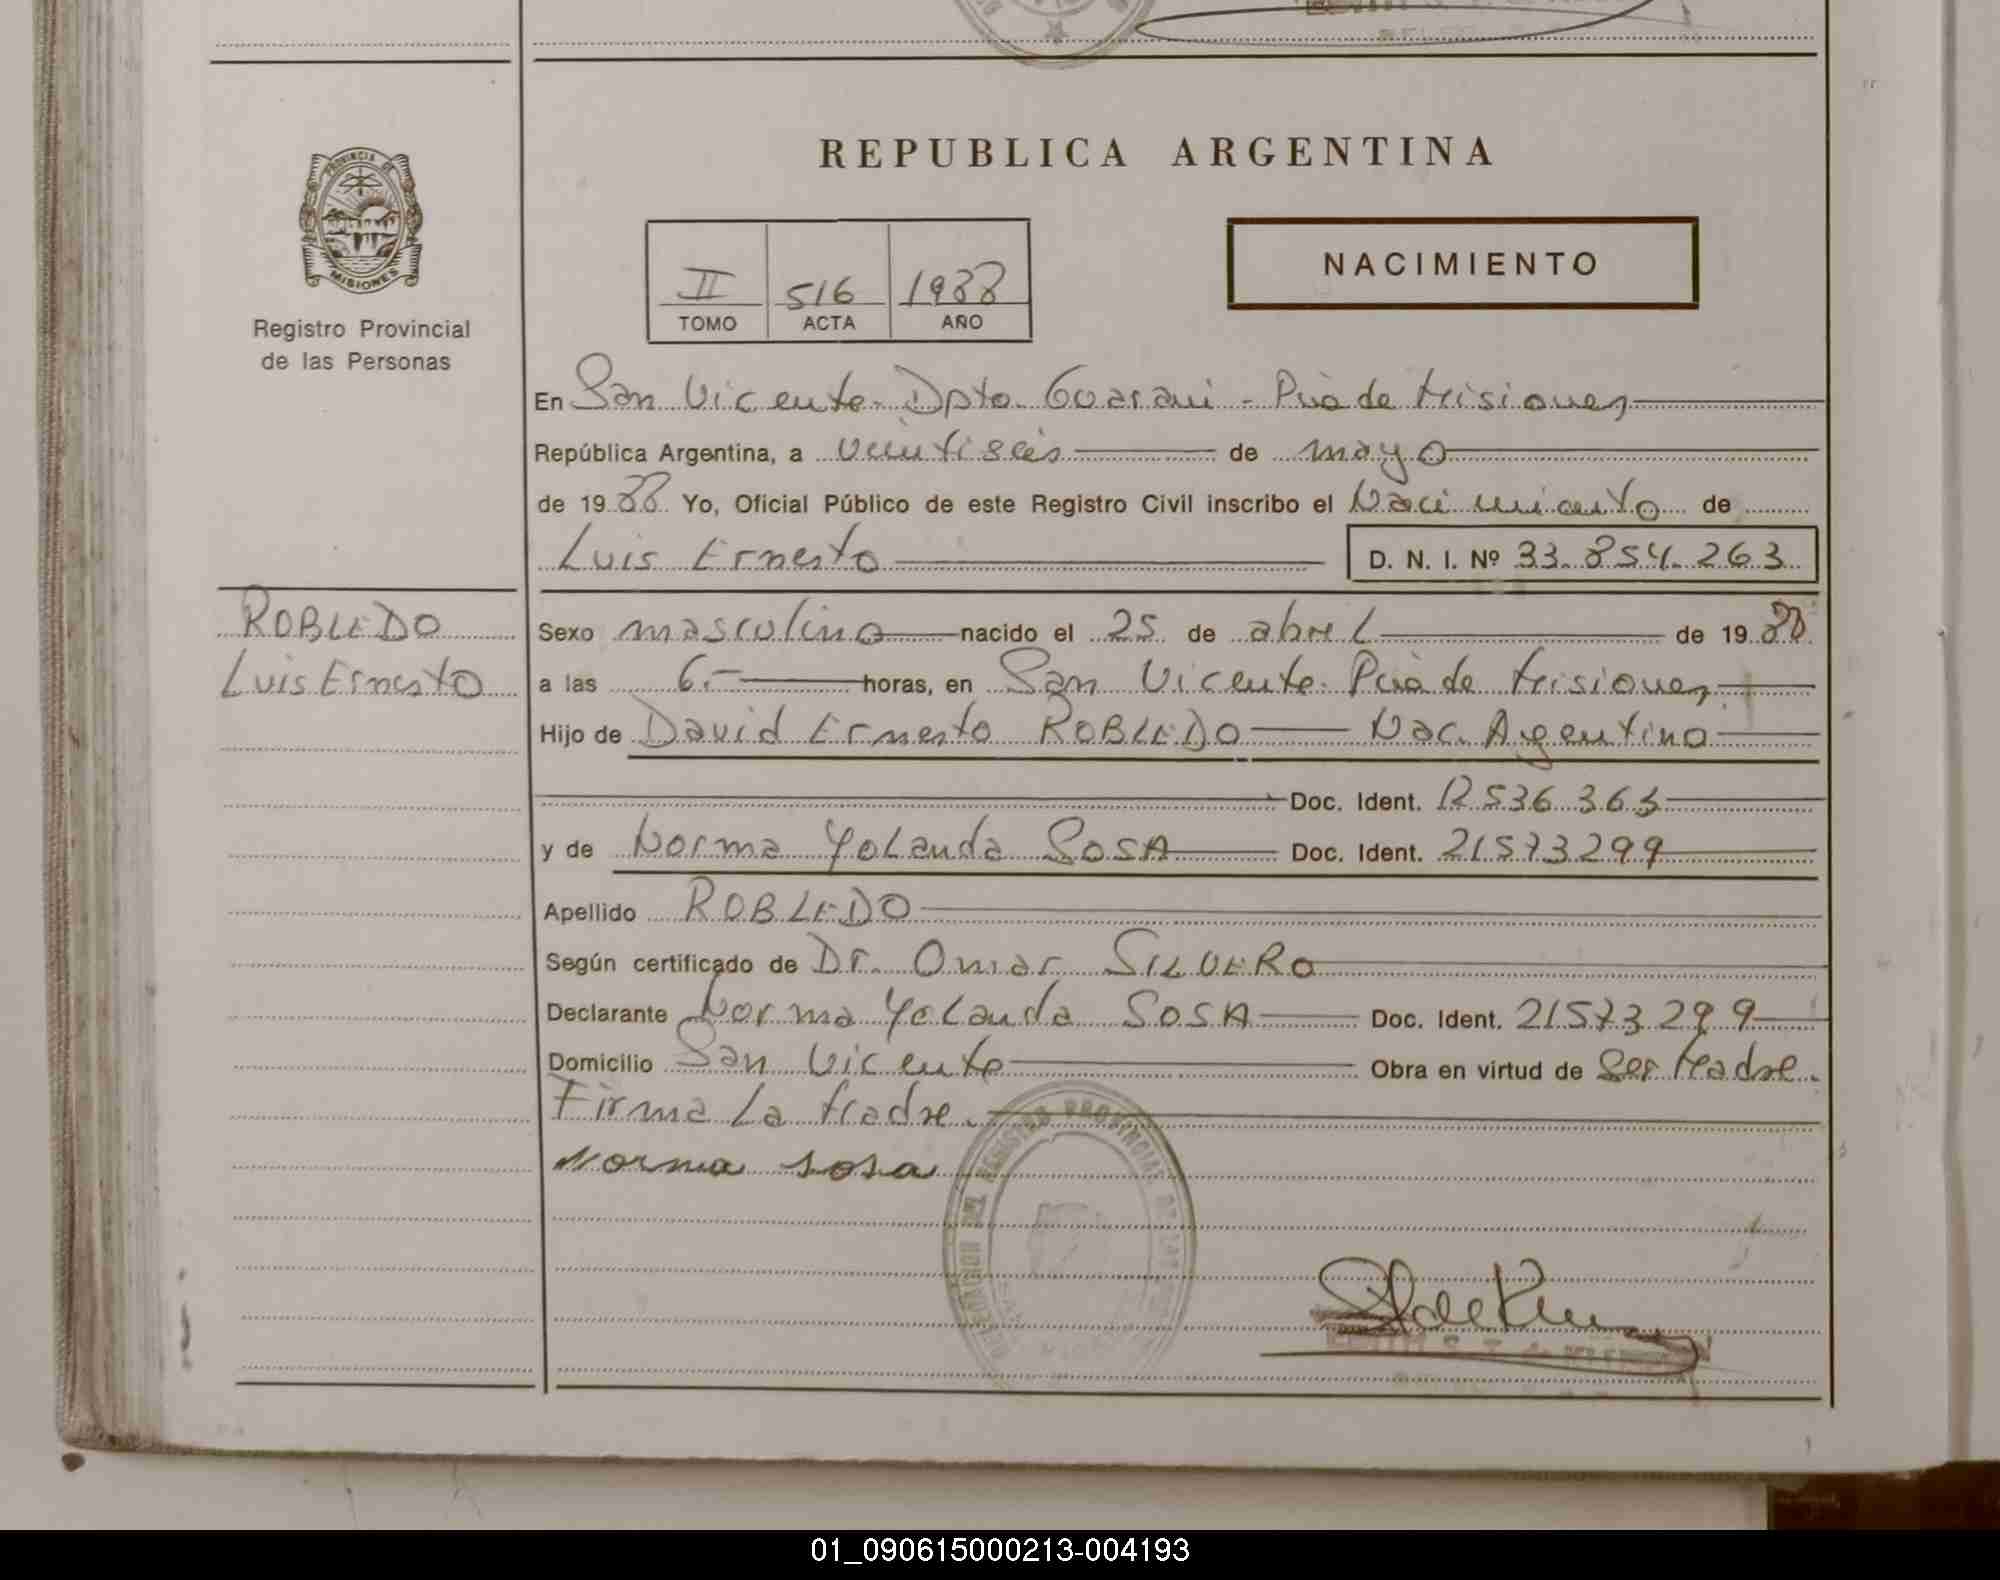 REPUBLICA ARGENTINA
PROVINCIA DE
MISIONES
Registro Provincial
de las Personas
II 516 1988
TOMO ACTA AÑO
NACIMIENTO
En San Vicente- Dpto. Guarani - Pcia de Misiones
República Argentina, a veintiseis de mayo
de 1988 Yo, Oficial Público de este Registro Civil inscribo el Nacimiento de
Luis Ernesto D. N. I. Nº 33.854.263
ROBLEDO
Luis Ernesto
Sexo masculino nacido el 25 de abril de 1988
a las 6.- horas, en San Vicente- Pcia de Misiones
Hijo de David Ernesto ROBLEDO Nac. Argentino
Doc. Ident. 12536363
y de Norma Yolanda SOSA Doc. Ident. 21573299
Apellido ROBLEDO
Según certificado de Dr. Omar SILVERO
Declarante Norma Yolanda SOSA Doc. Ident. 21573299
Domicilio San Vicente Obra en virtud de Ser Madre.
Firma La Madre.
Norma Sosa
DELEGACION DEL REGISTRO PROVINCIAL DE LAS
01_090615000213-004193